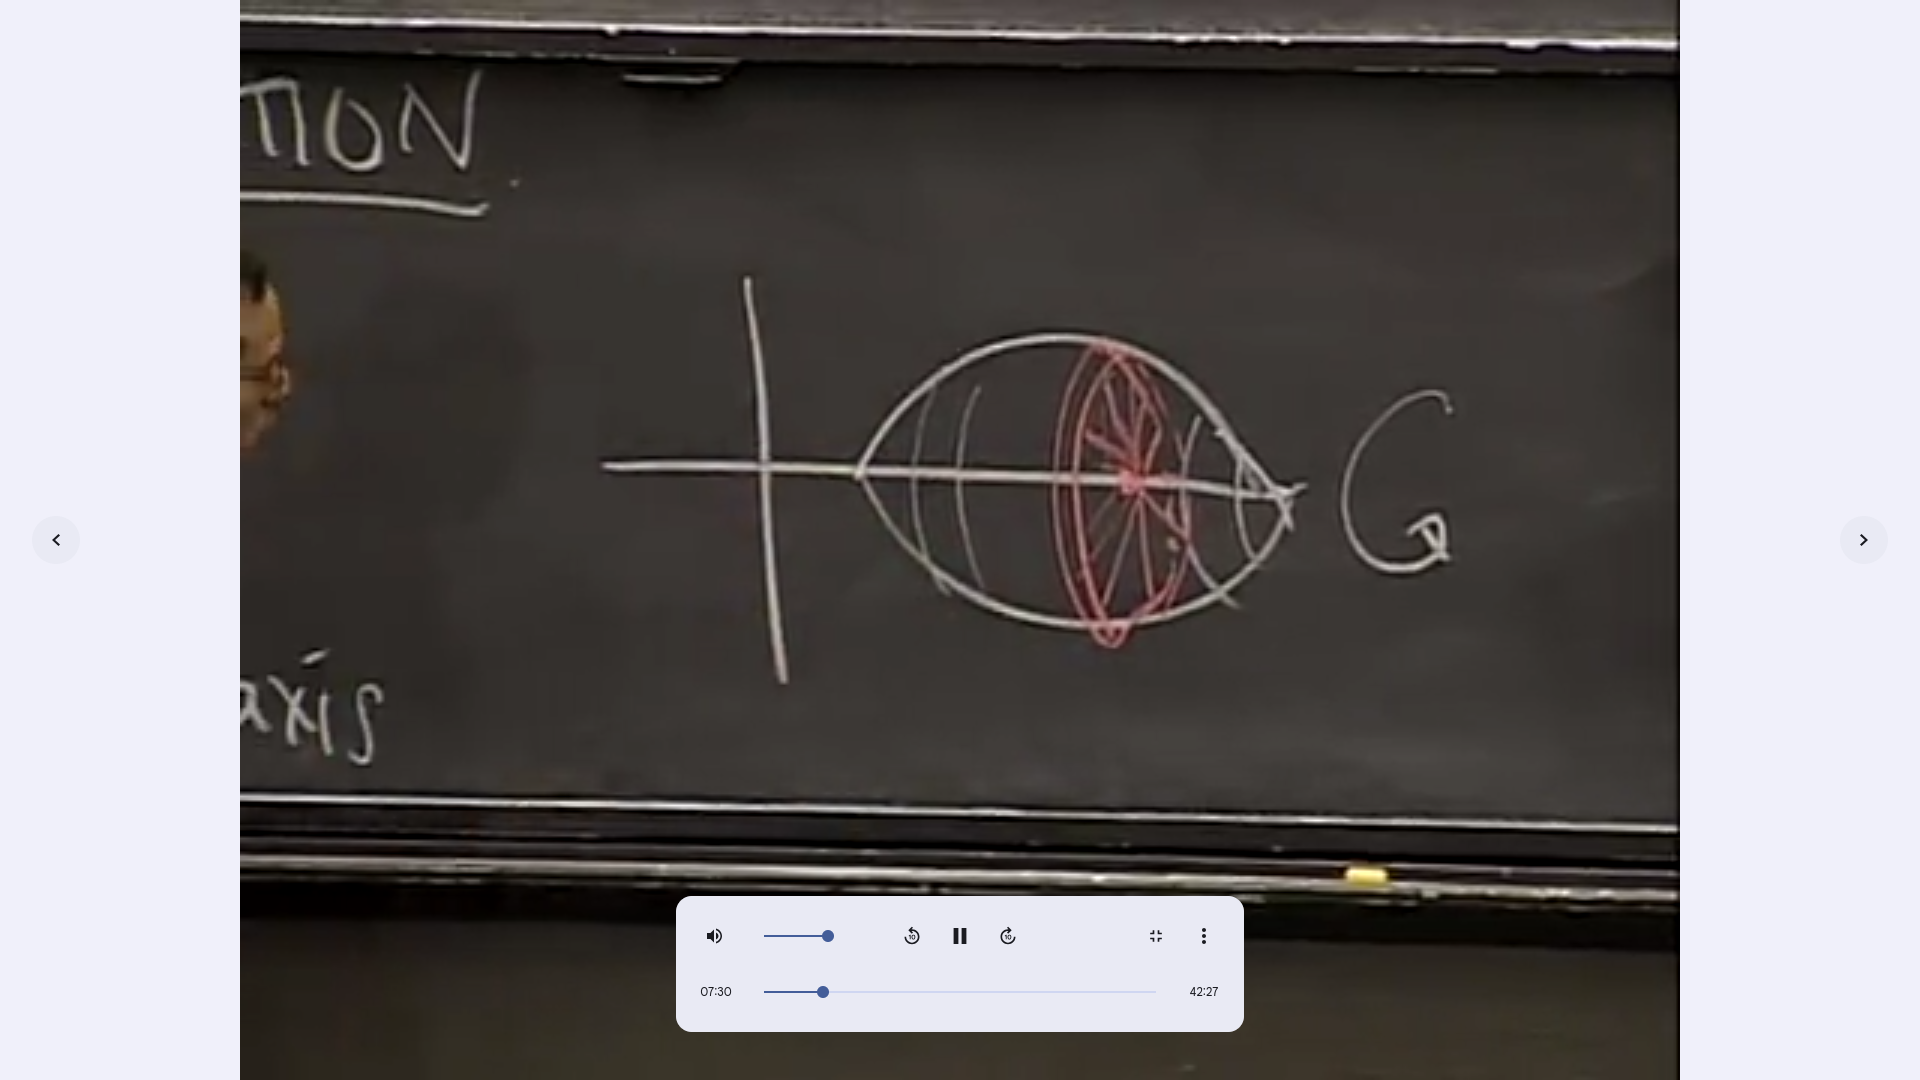 TION
axis
07:30
42:27